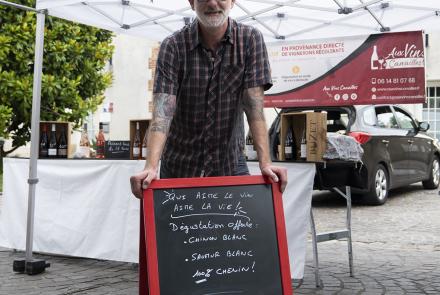 EN PROVENANCE DIRECTE
DE VIGNERONS RÉCOLTANTS
Aux Vins
Canailles
06 14 81 07 68
Aux Vins Canailles
QUI AIME LE VIN
AIME LA VIE !
Dégustation offerte :
• CHINON BLANC
• SAUMUR BLANC
100% CHENIN !